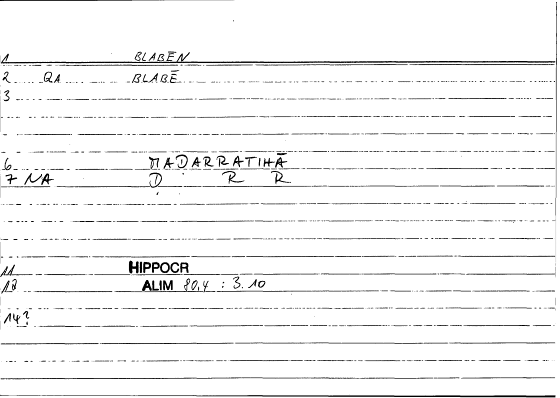 1 BLABĒN
2 QA BLABĒ
3
6 MADARRATIHĀ
7 NA D R R
11 HIPPOCR
18 ALIM 80,4 : 3.10
14?